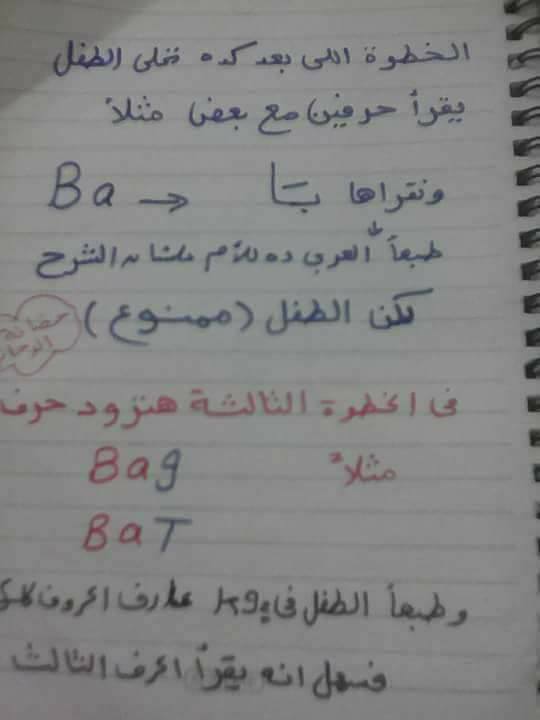 الخطوة اللى بعد كده نخلى الطفل
يقرأ حرفين مع بعض مثلاً
Ba → بَا ونقراها
طبعاً العربى ده للأم علشان الشرح
لكن الطفل (ممنوع)
حضانة
فى الخطوة الثالثة هنزود حرف
مثلاً Bag
BaT
وطبعاً الطفل فى kg2 عارف الحروف
فسهل انه يقرأ الحرف الثالث